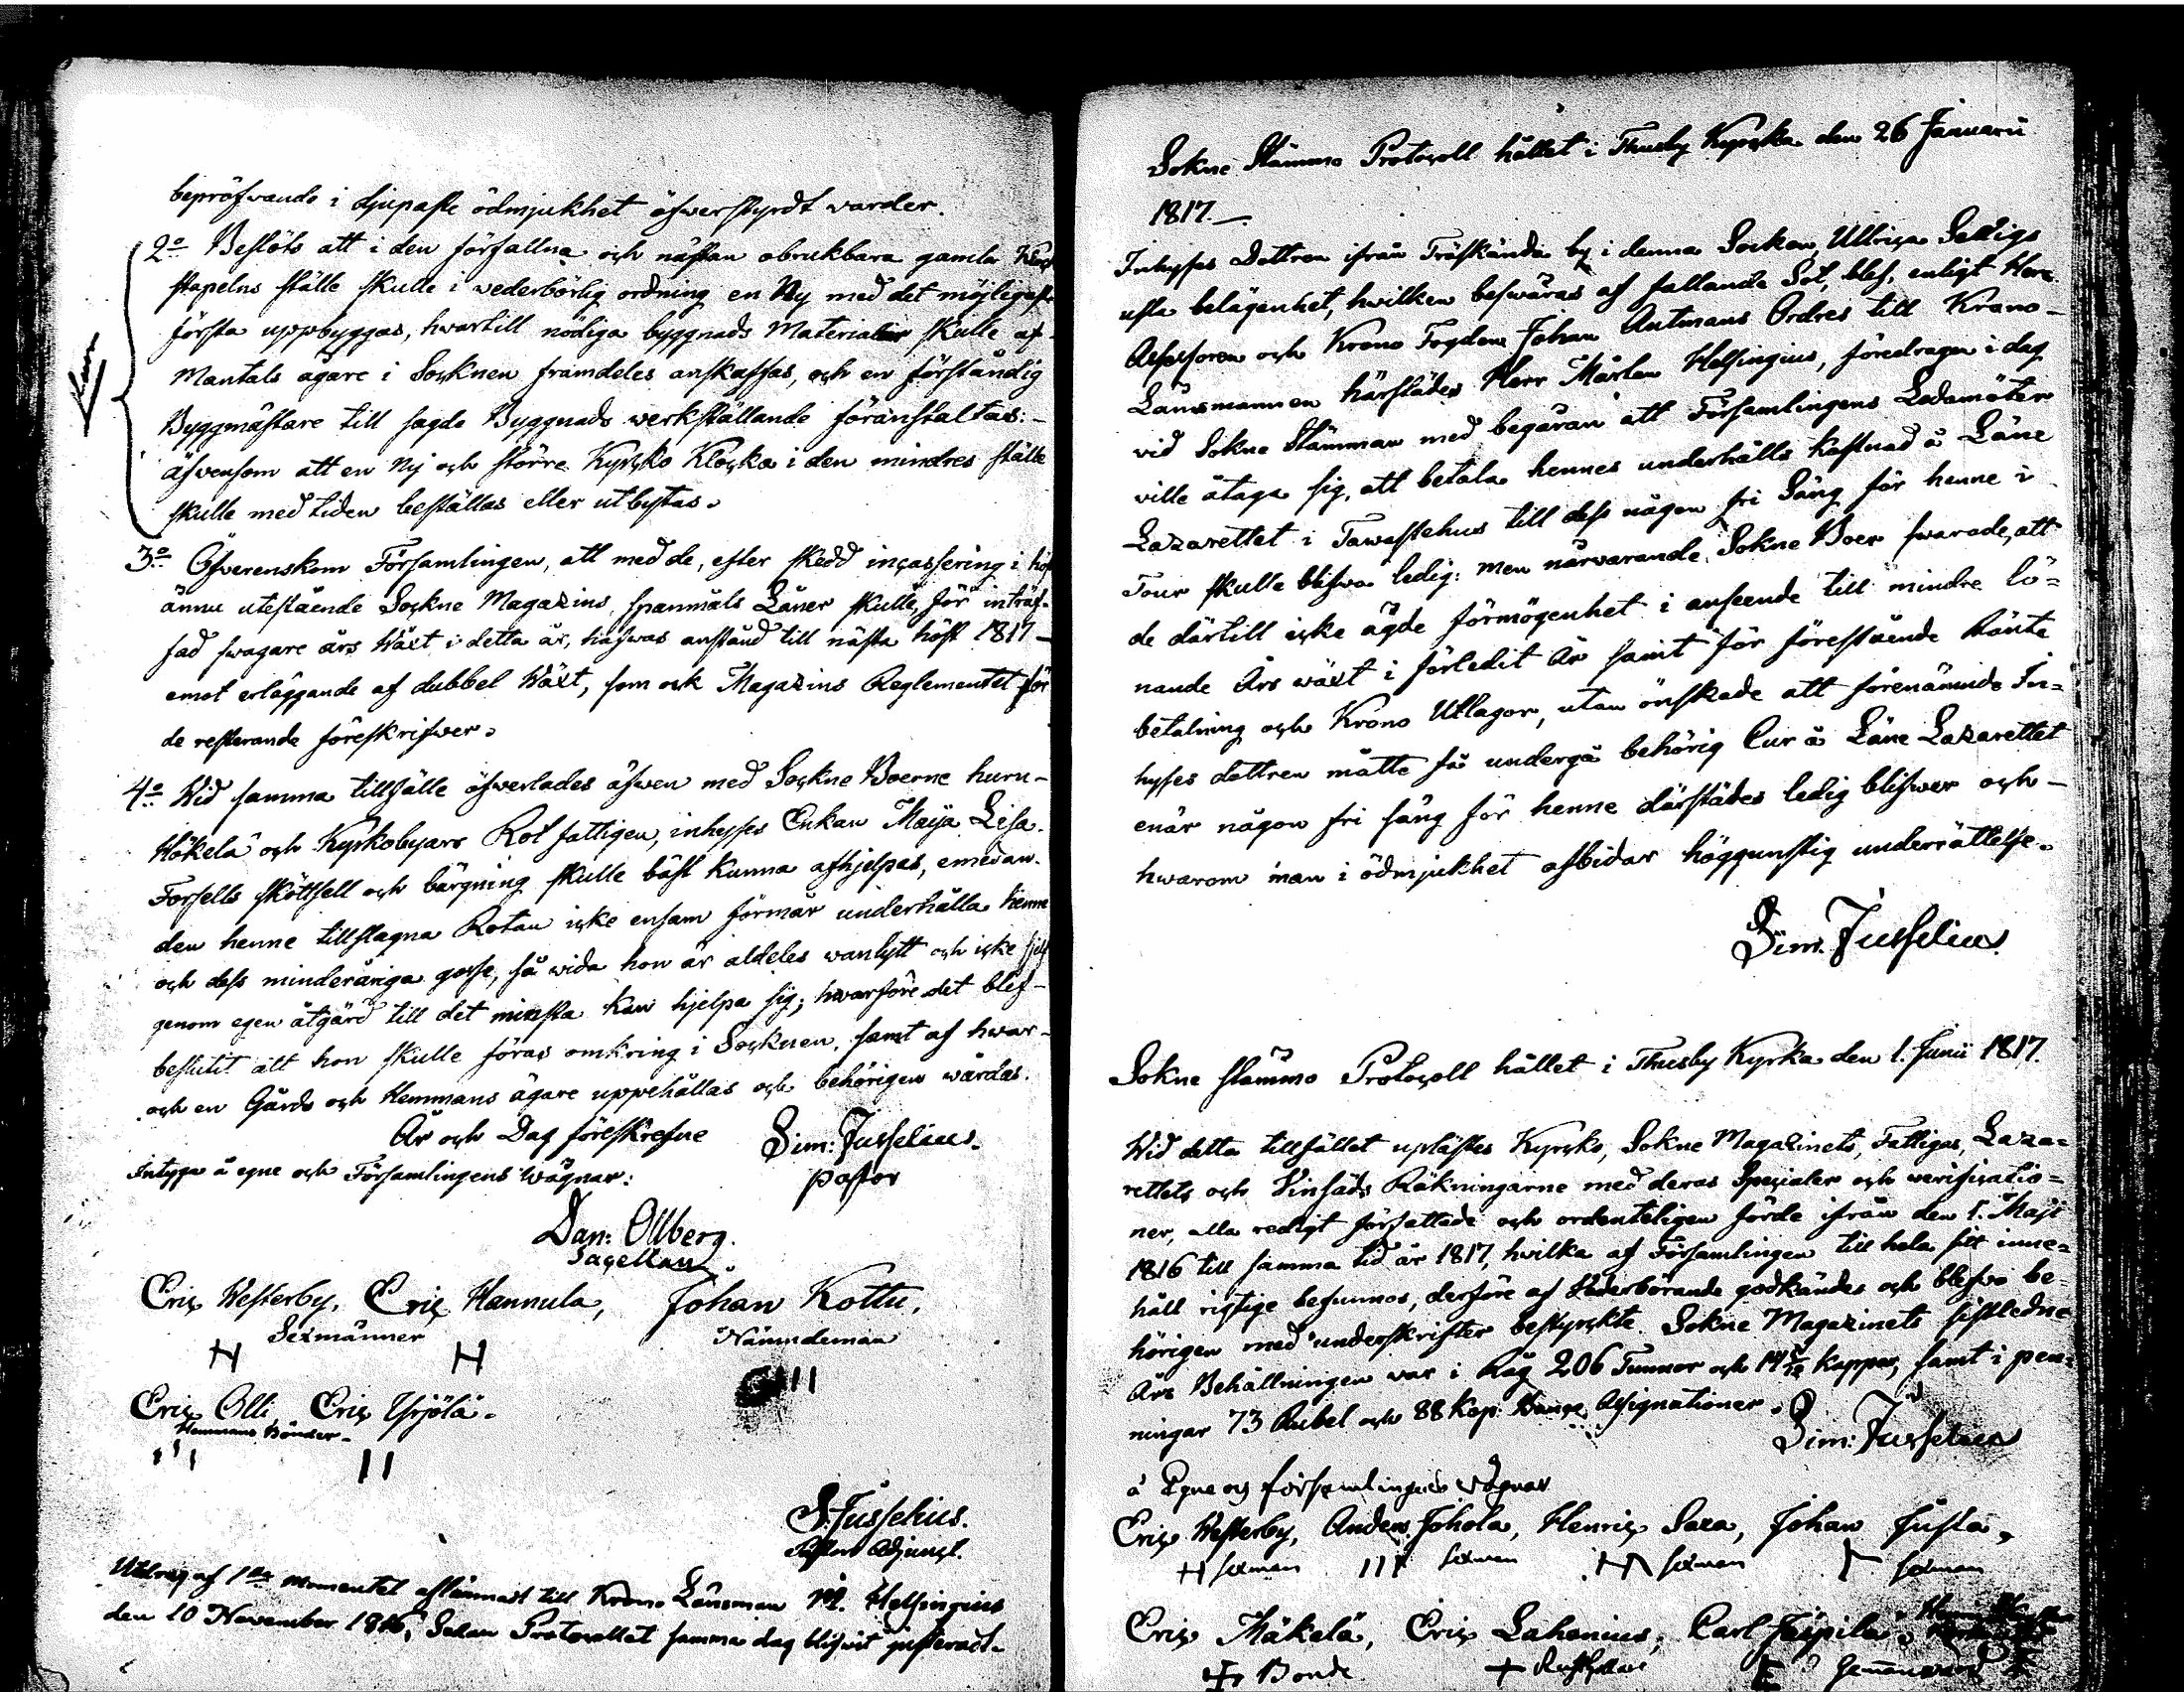 bepröfvande i djupaste ödmjukhet öfverstyrdt varder.
2o Beslöts att i den förfallna och nästan obrukbara gamla
stapelns ställe skulle i wederbörlig ordning en Ny med det möjligaste
första uppbyggas, hwartill nödiga byggnads Materialier skulle af
Mantals ägare i Socknen framdeles anskaffas, och en förståndig
Byggmästare till sagde Byggnads werkställande föranstaltas:-
äfvensom att en Ny och större Kyrcko Klocka i den mindres ställe
skulle med tiden beställas eller utbytas.
3o Öfverenskom Församlingen, att med de, efter skedd incassering i höst
ännu utestående Sockne Magazins, Spanmåls Låner skulle, för inträf-
fad swagare års Wäxt i detta år, hafwas anstånd till nästa höst 1817 -
emot erläggande af dubbel Wäxt, som ock Magazins Reglementet för
de resterande föreskrifwer.
4o Wid samma tillfälle öfwerlades äfwen med Sockne Boerne huru-
Hökelä och Kyrkobyars Rot fattigen, inhyses Enkan Maija Lisa
Forsells sköttsell och bärgning skulle bäst kunna afhjelpas, emedan
den henne tillslagna Rotan icke ensam förmår underhålla henne
och dess minderåriga gosse, så wida hon är aldeles wanlytt och icke sjelf
genom egen åtgärd till det minsta kan hjelpa sig; hwarföre det blef-
beslutit att hon skulle föras omkring i Socknen, samt af hwar-
och en Gårds och Hemmans ägare uppehållas och behörigen wårdas.
År och Dag föreskrefne Sim: Jusselius.
Intyga å egne och Församlingens Wägnar: Pastor
Dan: Ollberg.
Sacellan.
Eric Westerby, Eric Hannula, Johan Kottu,
Sexmänner Nämndeman
Eric Olli, Eric Yrjölä.
Hemmans Bönder.
S. Jusselius.
Pastors Adjunct.
Utdrag af 1sta momentet aflämnadt till Krono Länsman M. Helsingius
den 10 November 1816, Sedan Protocollet samma dag blifvit justeradt.
Sokne Stämmo Protocoll hållet i Thusby Kyrcka den 26 Januarii
1817.
Inhyses Dottren ifrån Träskända by i denna Socken, Ullrica Salligs
usla belägenhet, hwilken beswäras af fallande Sot, blef, enligt Herr
Assessoren och Krono Fogden Johan Autmans Ordres till Krono-
Länsmannen härstädes Herr Mårten Helsingius, föredragen i dag
vid Sokne Stämman med begäran att Församlingens Ledamöter
ville åtaga sig, att betala hennes underhålls kostnad å Läne
Lazarettet i Tawastehus till dess någon fri Säng för henne i
Tour skulle blifwa ledig: men närvarande Sokne Boer swarade, att
de därtill icke ägde förmögenhet i anseende till mindre lö=
nande Års wäxt i förledit År samt för förestående Ränte
betalning och Krono Utlagor, utan önskade att förenämnde In=
hyses dottren måtte få undergå behörig Cur å Läne Lazarettet
enär någon fri säng för henne därstädes ledig blifwer och -
hwarom man i ödmjukhet afbidar höggunstig underrättelse.
Sim. Jusselius.
Sokne stämmo Protocoll hållet i Thusby Kyrka den 1. Junii 1817.
Wid detta tillfället uplästes Kyrcko, Sokne Magazinets, Fattigas, Laza=
rettets och Linsäds Räkningarne med deras Specialer och verificatio=
ner, alla redigt författade och ordenteligen förde ifrån den 1. Maji
1816 till samma tid år 1817, hvilka af Församlingen till hela sitt inne=
håll rigtige befunnos, derföre af Wederbörande godkändes och blefwo be=
hörigen med underskrifter bestyrckte. Sokne Magazinets sistledne
Års Behållningen war i Råg 206 Tunnor och 14 kappar, samt i pen=
ningar 73 Rubel och 88 Kop: Banco Assignationer.
Sim: Jusselius
å Egne och församlingens wägnar
Eric Westerby, Anders Johola, Henric Saxa, Johan Justa,
sexman sexman sexman sexman
Eric Mäkelä, Eric Lahenius, Carl Jäppilä
Bonde Rusthållare